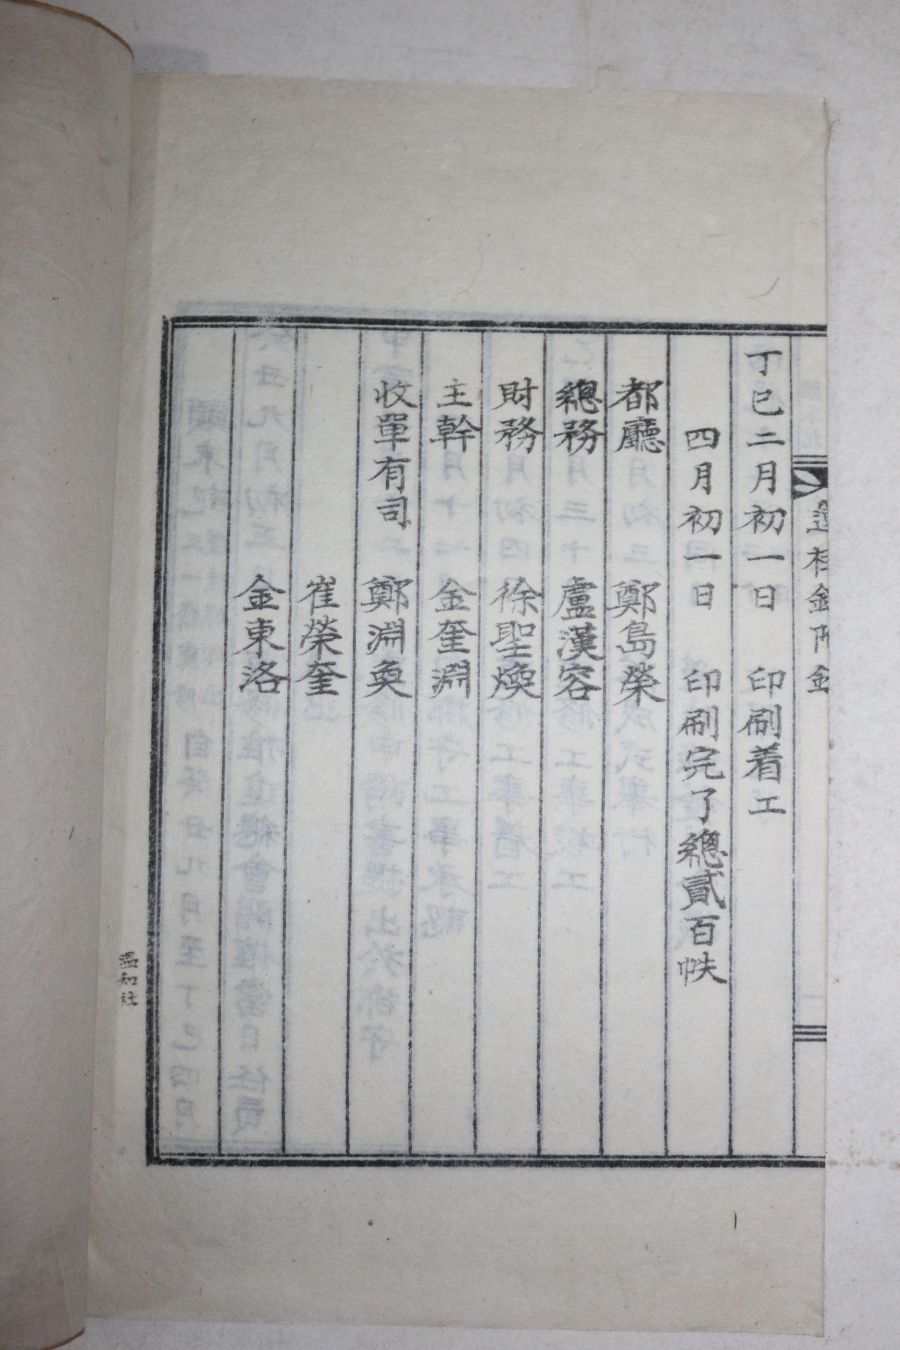 桂錄附錄
丁巳二月初一日　印刷着工
四月初一日　印刷完了總貳百帙
都廳　鄭島榮
總務　盧漢容
財務　徐聖煥
主幹　金奎淵
收單有司　鄭淵奐
崔榮奎
金東洛
溫知社